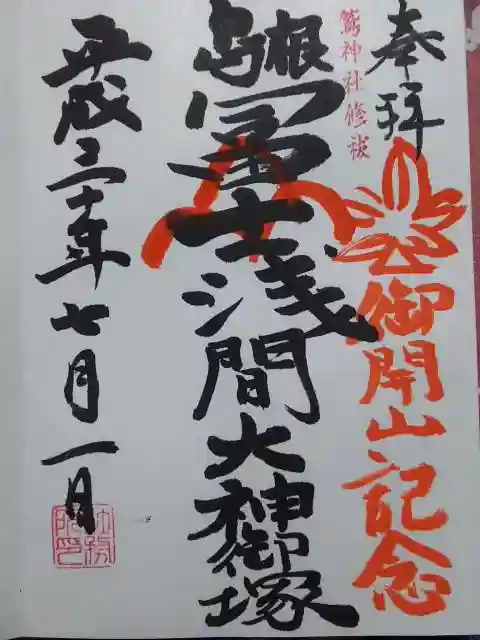 奉拝
御開山記念
鷲神社修祓
島根
冨士浅間大神御塚
平成三十年七月一日